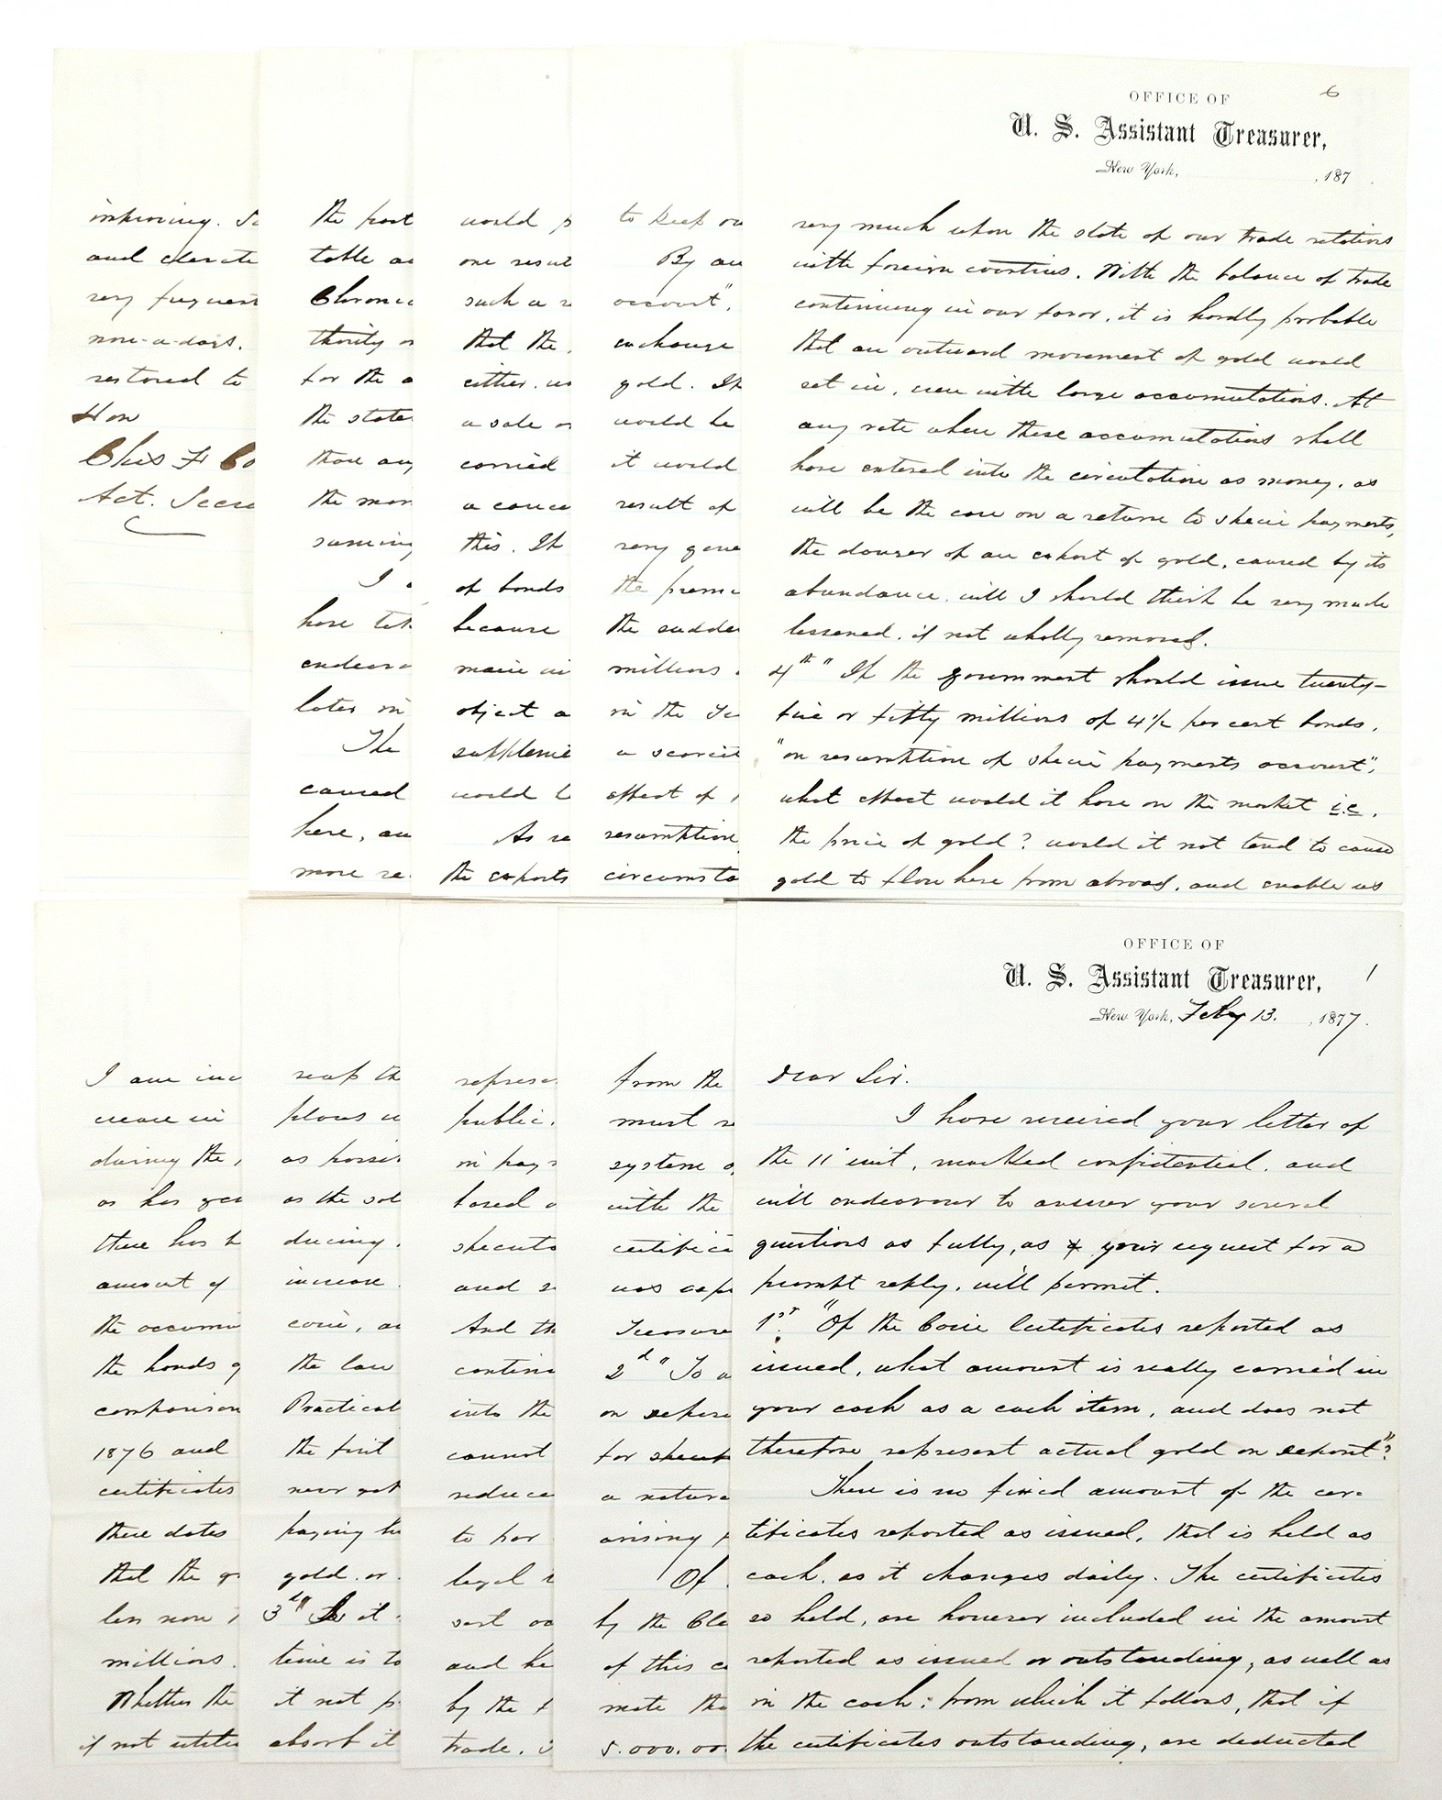 improving. 
and elevate
very frequent
now-a-days.
restored to
Hon
Chas F Co
Act. Secre
the past
table ac
Chronic
thority
for the
the state
than any
the mon
suming
I
have tak
endeavo
later in
The
caused
here, an
more re
would p
one result
such a
that the
either
a sale
carried
a conce
this. If
of bonds
because
main in
object a
would b
As re
the exports
to keep ou
By an
account",
exchange
gold. If
would be
it would
result of
very gene
the premi
the sudden
millions
in the Tr
a scarcit
effect of
resumption
circumsta
OFFICE OF
6
U. S. Assistant Treasurer,
New York, , 187
very much upon the state of our trade relations
with foreign countries. With the balance of trade
continuing in our favor, it is hardly probable
that an outward movement of gold would
set in, even with large accumulations. At
any rate when these accumulations shall
have entered into the circulation as money, as
will be the case on a return to specie payments,
the danger of an export of gold, caused by its
abundance, will I should think be very much
lessened, if not wholly removed.
4th "If the government should issue twenty-
five or fifty millions of 4½ per cent bonds,
"on resumption of specie payments account",
what effect would it have on the market i.e.
the price of gold? would it not tend to cause
gold to flow here from abroad, and enable us
I am inc
crease in
during the
as has
there has b
amount of
the accumu
the hands of
comparison
1876 and
certificates
these dates
that the
less now
millions.
Whether the
if not
reap th
as possi
as the
ducing
increase
coin, an
the law
Practical
the first
never
paying
gold or
3d" it
time is to
it not p
absorb it
represe
public.
in pay
based
specula
and
And th
contin
into the
cannot
reduce
to par
legal
and
by the
trade.
from the
must
system
with the
certifica
was
Treasure
2d" To
on
for
a natura
arising
Of
by the Cle
of this
mate tha
5.000.00
OFFICE OF
U. S. Assistant Treasurer, 1
New York, Feby 13. , 1877.
Dear Sir.
I have received your letter of
the 11 inst, marked confidential, and
will endeavour to answer your several
questions as fully, as your request for a
prompt reply, will permit.
1st. "Of the Coin Certificates reported as
issued, what amount is really carried in
your cash as a cash item, and does not
therefore represent actual gold on deposit"?
There is no fixed amount of the cer-
tificates reported as issued, that is held as
cash, as it changes daily. The certificates
so held, are however included in the amount
reported as issued or outstanding, as well as
in the cash; from which it follows, that if
the certificates outstanding, are deducted